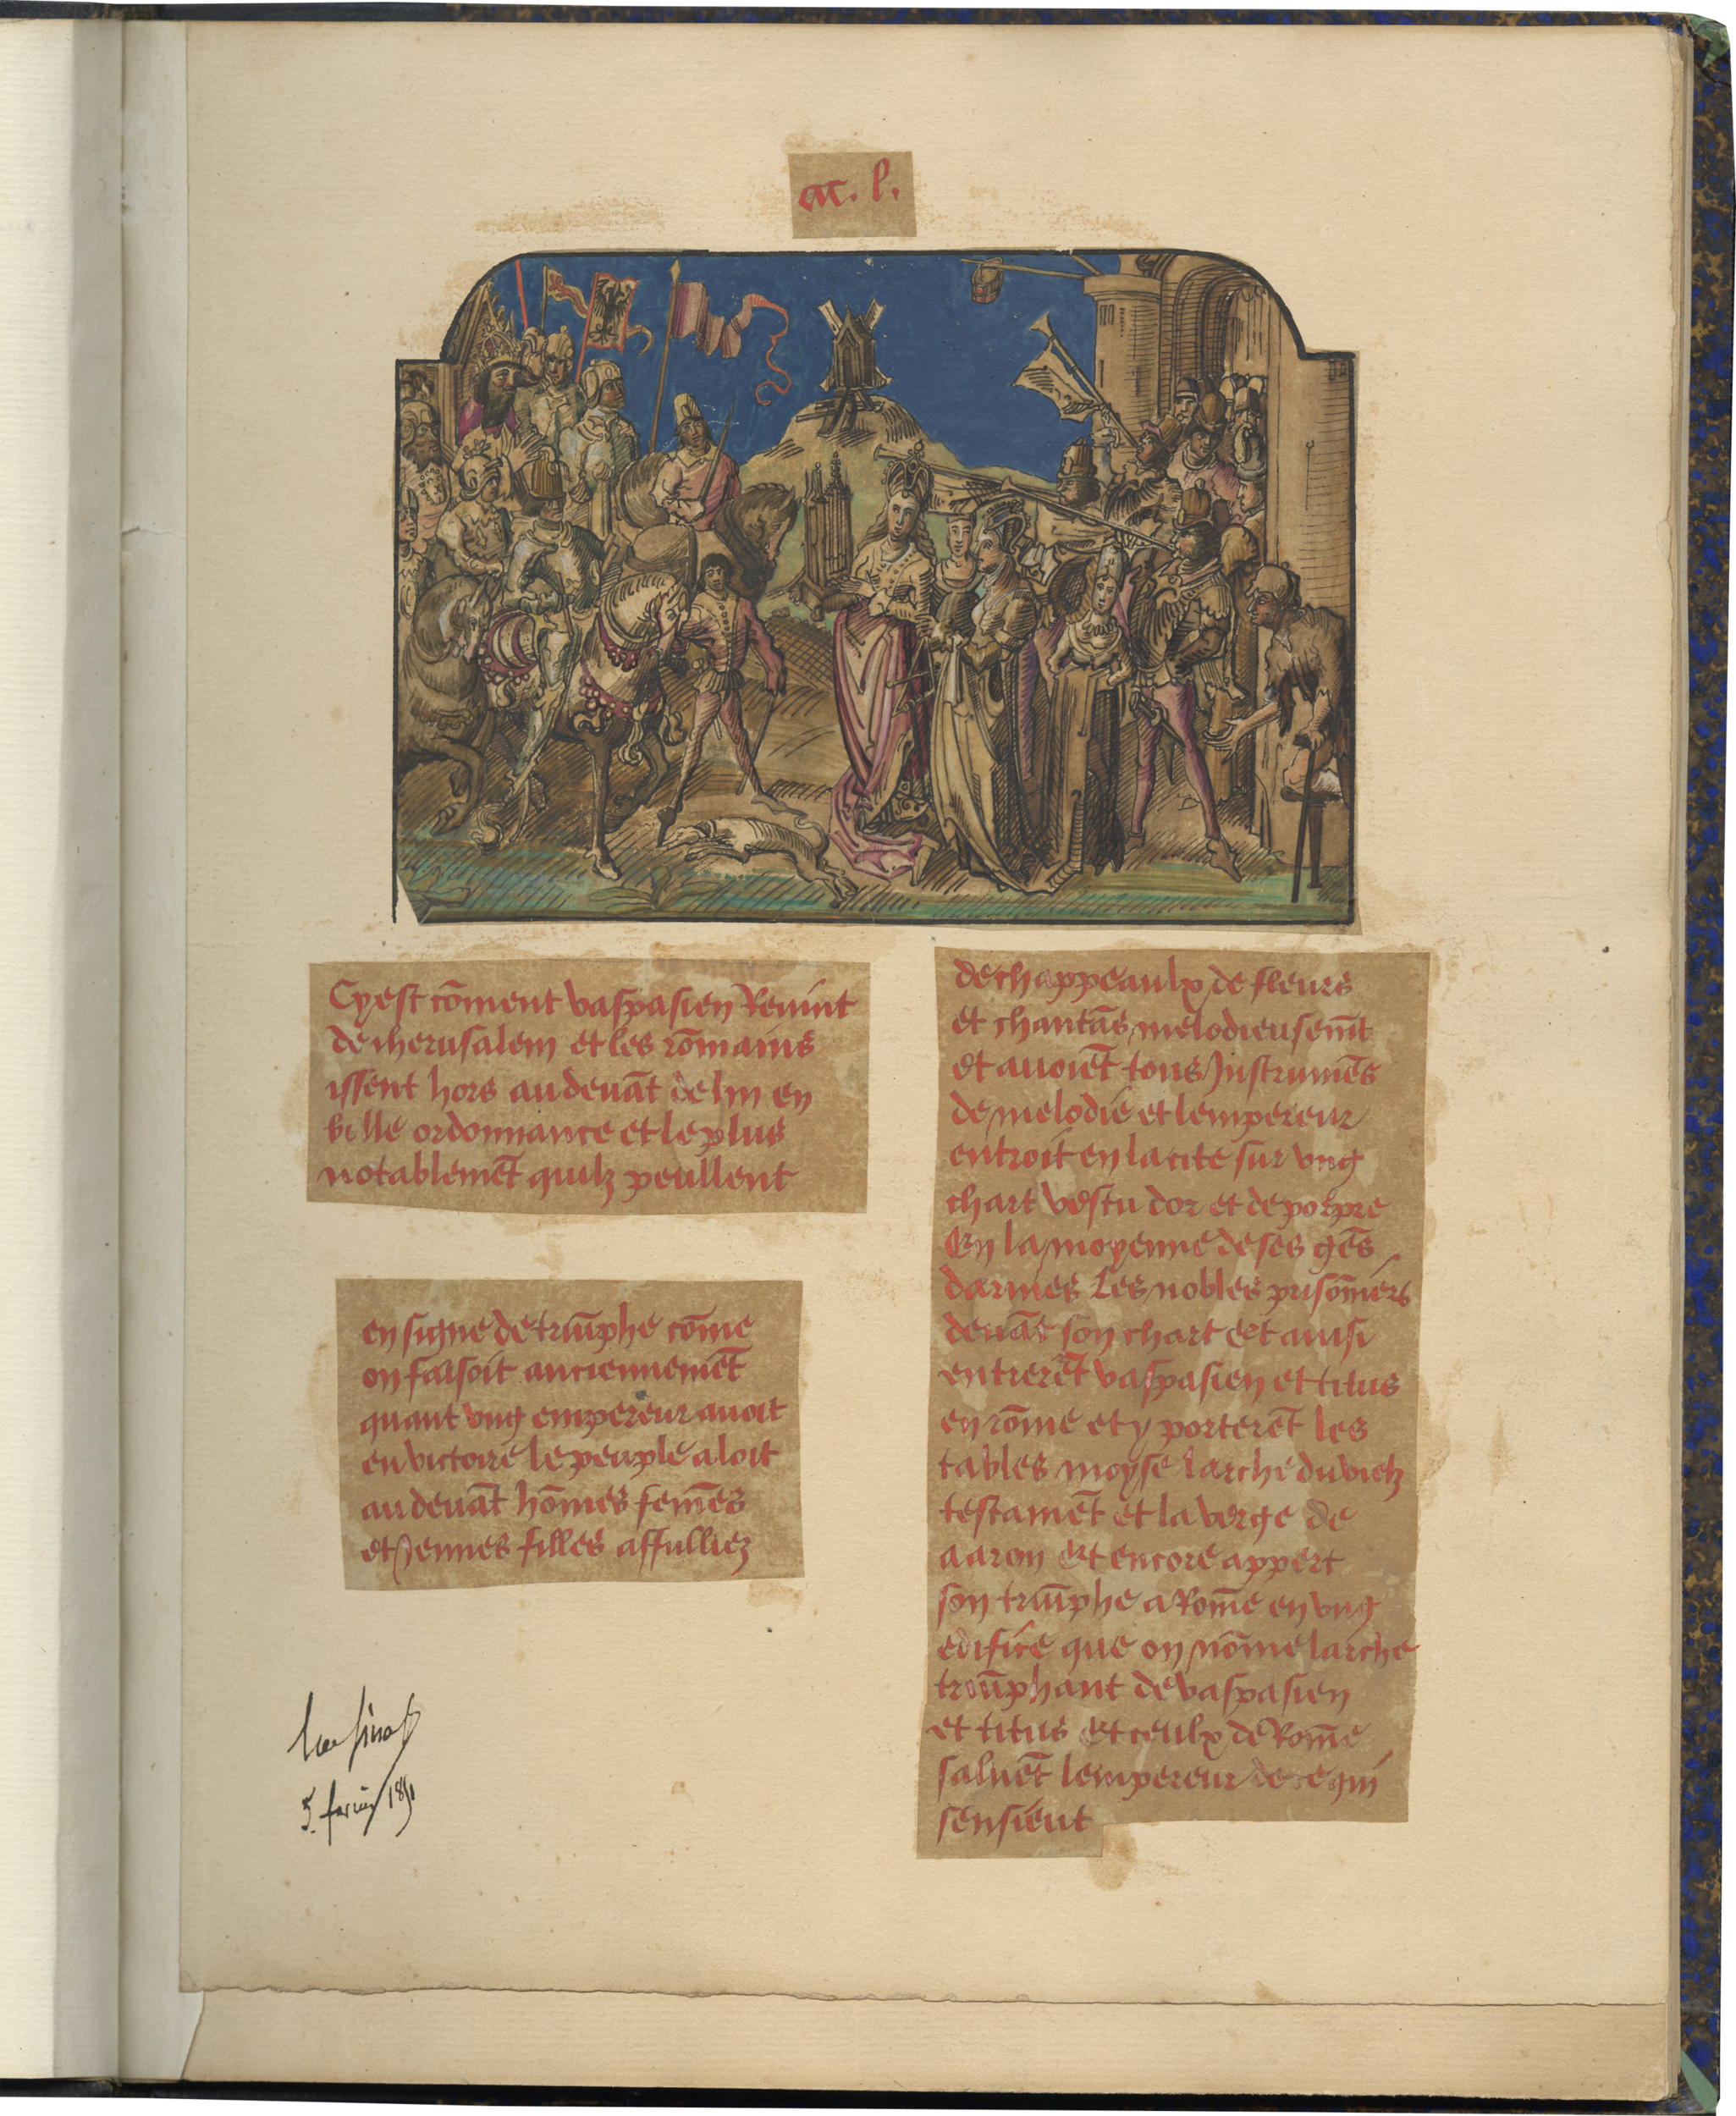 ac. l.
Cy est cōment vaspasien Revint
de iherusalem et les rōmains
issent hors au devāt de lui en
belle ordonnance et le plus
notablemēt quilz peullent
en signe de triūphe cōme
on faisoit anciennemēt
quant vng empereur avoit
eu victoire le peuple aloit
au devāt hōmes femēs
et Jennes filles affulliez
de chappeaulx de fleurs
et chantās melodieusemēt
et avoiēt tous Instrumēs
de melodie et lempereur
entroit en la cite sur vng
chart vestu dor et de porpre
En la moyenne de ses gēs
darmes Les nobles prisōniers
devāt son chart Et ainsi
entrerēt vaspasien et titus
en rōme et y porterēt les
tables moyse larche du vielz
testamēt et la verge de
aaron Et encore appert
son triūphe a Romē en vng
edifice que on nōme larche
triūphant de vaspasien
et titus Et ceulx de Romē
saluēt lempereur de ce qui
sensient
5. fevrier 1891